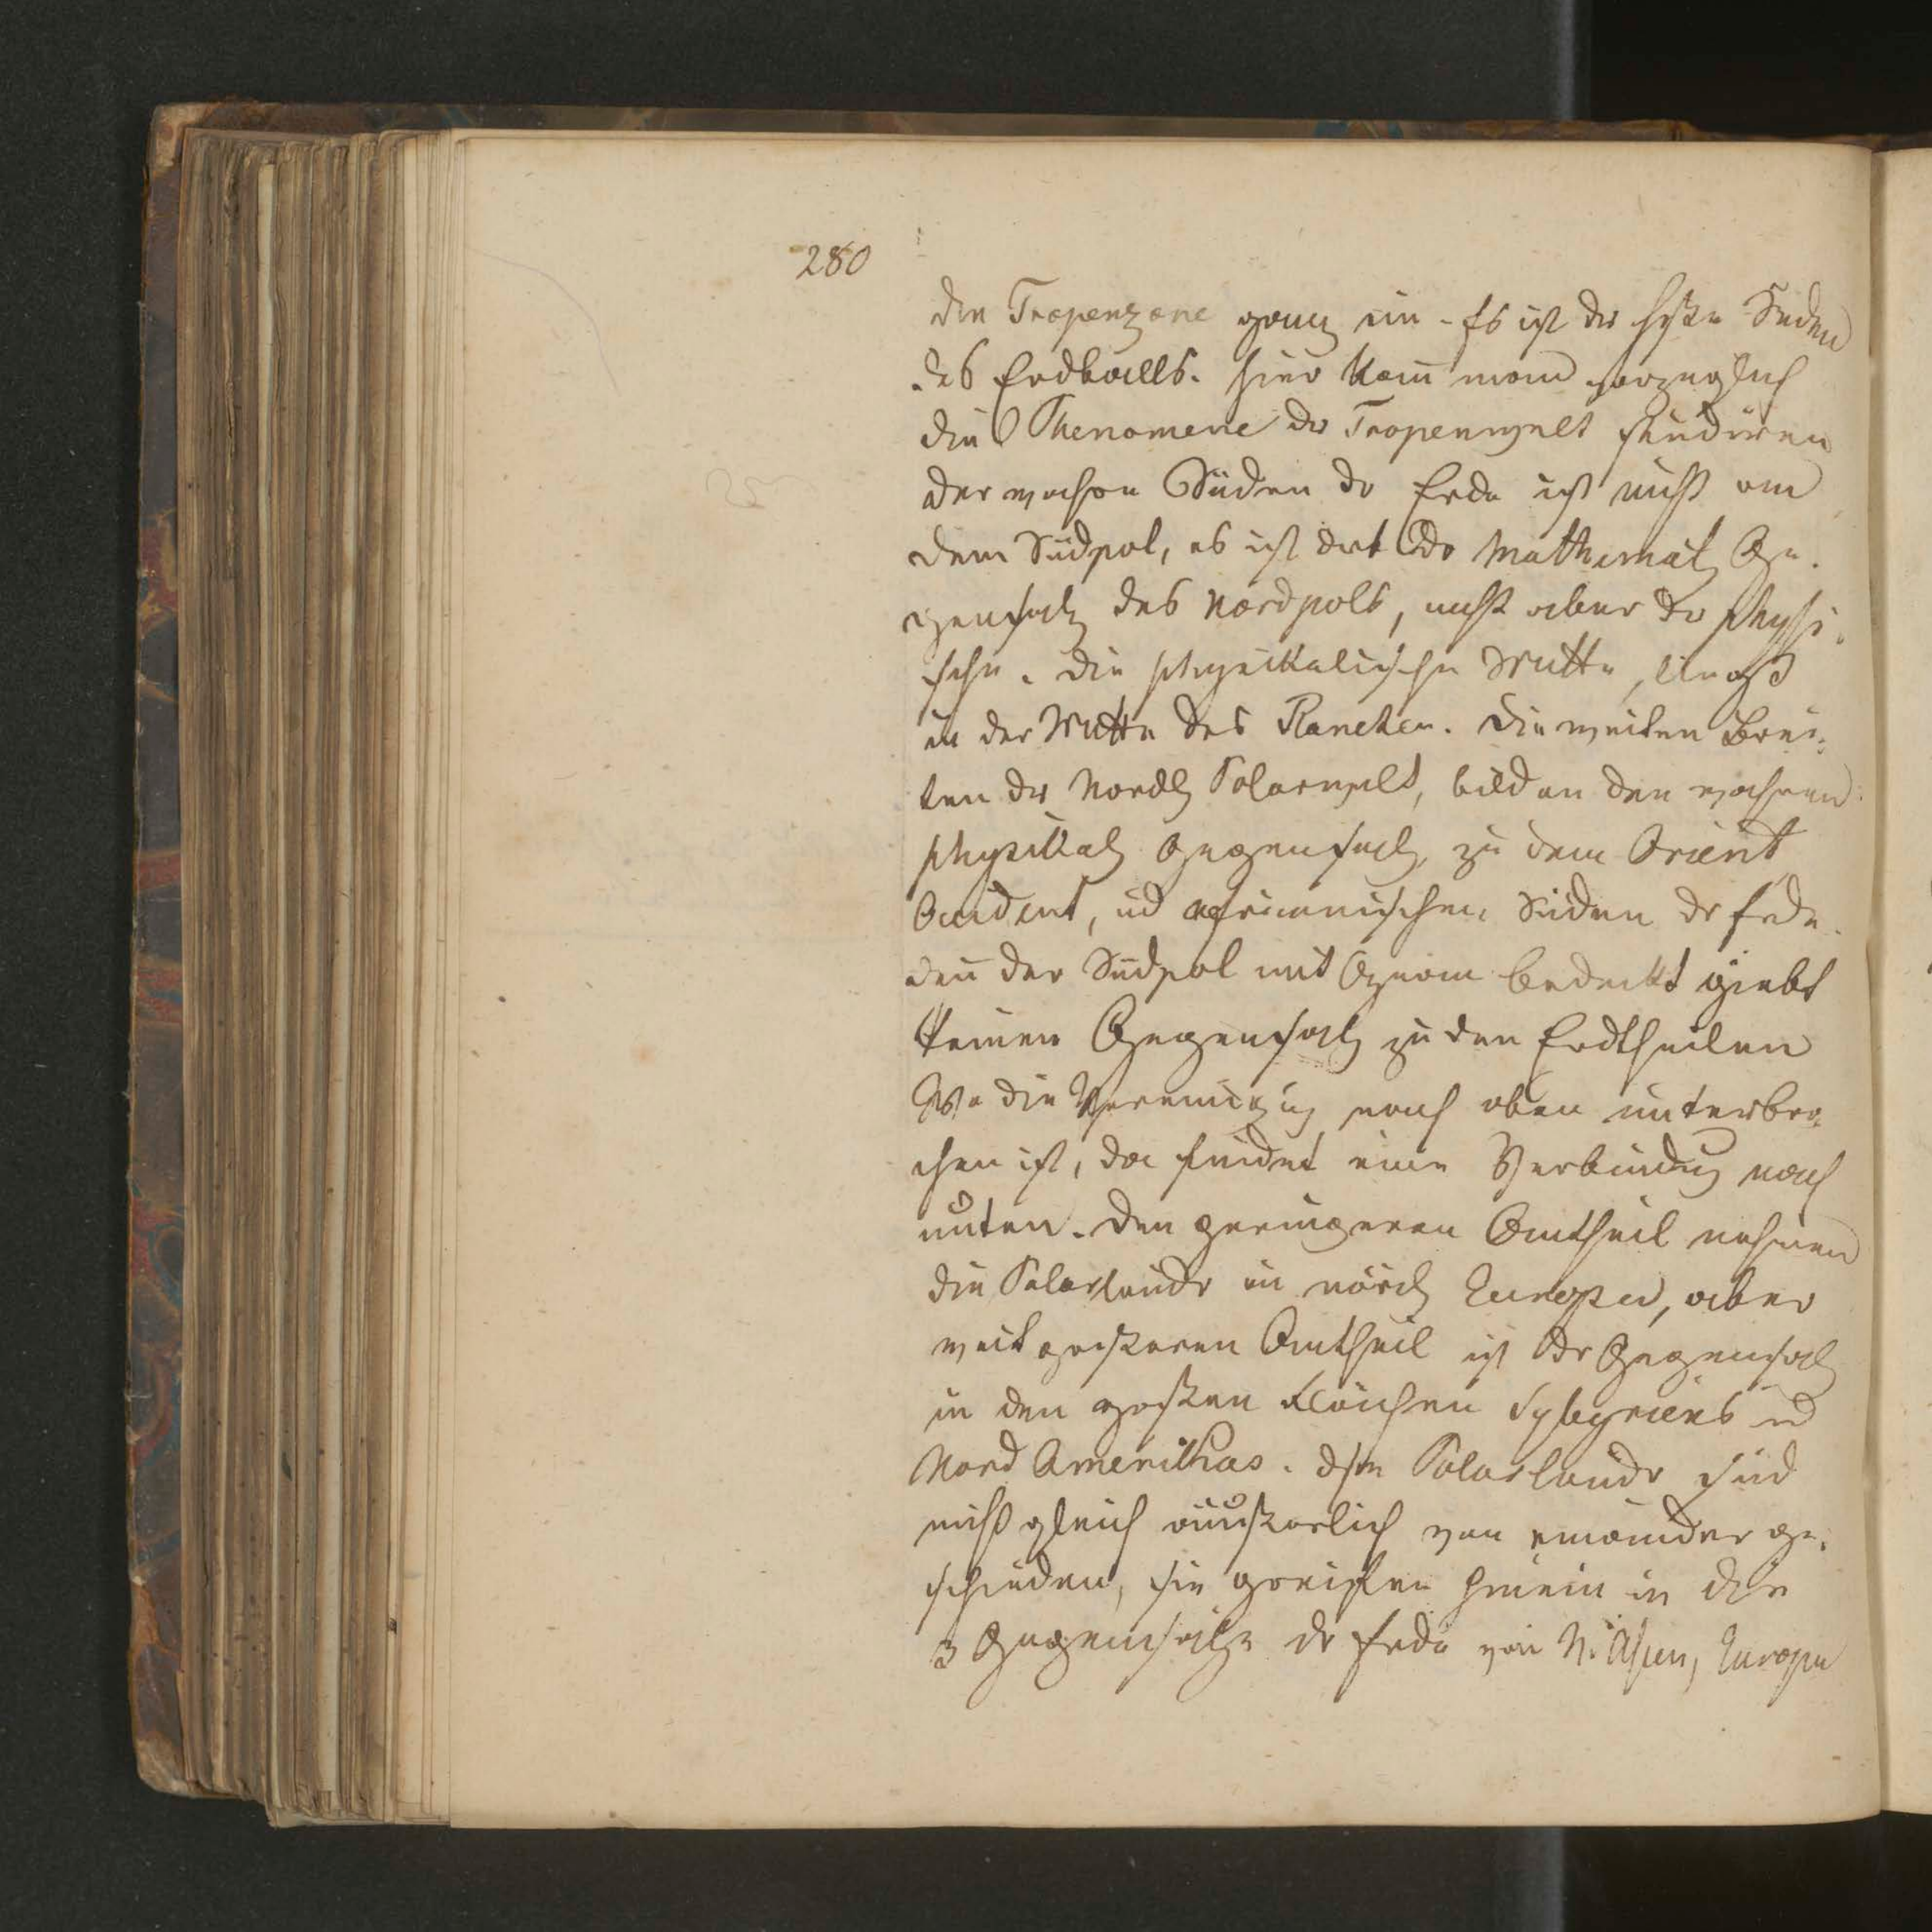 280
die Tropenzone ganz ein. Es ist der heiße Süden
des Erdballs. hier kañ man vorzüglich
die Phenomene der Tropenwelt studieren
der wahre Süden der Erde ist nicht an
dem Südpol, es ist dort der Mathemat. Ge-
gensatz des Nordpols, nicht aber der physi-
sche. die physikalische Mitte, liegt
in der Mitte des Planeten. die weiten Brei-
ten der Nordl. Polarwelt, bilden den wahren
physikal. Gegensatz, zu dem Orient
Occident, ud africanischen Süden der Erde
deñ der Südpol mit Ozean bedeckt giebt
keinen Gegensatz zu den Erdtheilen
Wo die Vereinigung nach oben unterbro-
chen ist, da findet eine Verbindung nach
unten. den geringeren Antheil nehmen
die Polarlande in nördl. Europa, aber
weit größeren Antheil ist der Gegensatz
in den großen Flächen Sybyriens ud
Nord Amerikhas. diese Polarlande sind
nicht gleich äußerlich von einander ge-
schieden, sie greifen hinein in die
3 Gegensätze der Erde von N. Asien, Europa